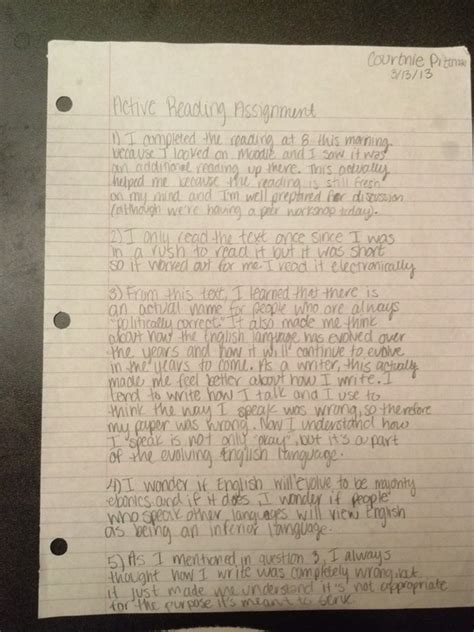 Courtnie
3/13/13
Active Reading Assignment
1) I completed the reading at 8 this morning
because I looked on Moodle and I saw it was
an additional reading up there. This actually
helped me because the reading is still fresh
on my mind and I'm well prepared for discussion
(although we're having a peer workshop today).
2) I only read the text once since I was
in a rush to read it but it was short
so it worked out for me. I read it electronically
3) From this text, I learned that there is
an actual name for people who are always
"politically correct." It also made me think
about how the English language has evolved over
the years and how it will continue to evolve
in the years to come. As a writer, this actually
made me feel better about how I write. I
tend to write how I talk and I use to
think the way I speak was wrong, so therefore
my paper was wrong. Now I understand how
I speak is not only "okay", but it's a part
of the evolving English language.
4) I wonder if English will evolve to be majority
ebonics and if it does, I wonder if people
who speak other languages will view English
as being an inferior language.
5) As I mentioned in question 3, I always
thought how I write was completely wrong but
it just made me understand it's not appropriate
for the purpose it's meant to serve.